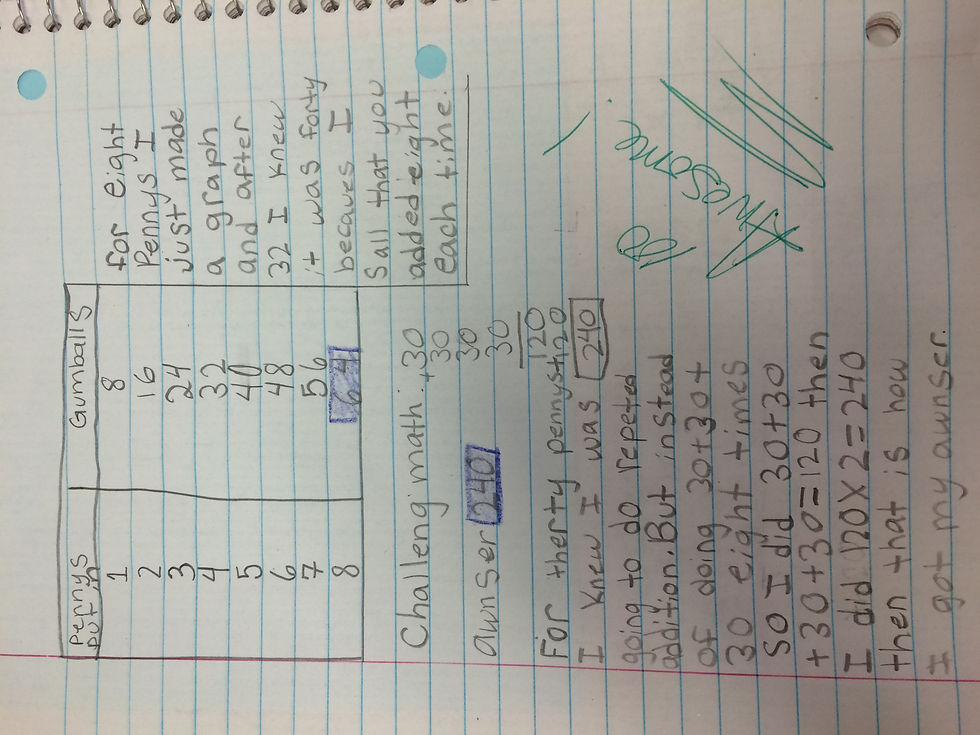 Pennys put in Gumballs
1 8
2 16
3 24
4 32
5 40
6 48
7 56
8 64
for eight
Pennys I
just made
a graph
and after
32 I knew
it was forty
becaves I
Sall that you
added eight
each time.
Challeng math.
+30
30
30
30
120
+120
240
awnser 240
For therty pennys
I knew I was
going to do repeted
addition. But instead
of doing 30+30+
30 eight times
so I did 30+30
+30+30=120 then
I did 120X2=240
then that is how
I got my awnser.
100
Awesome!